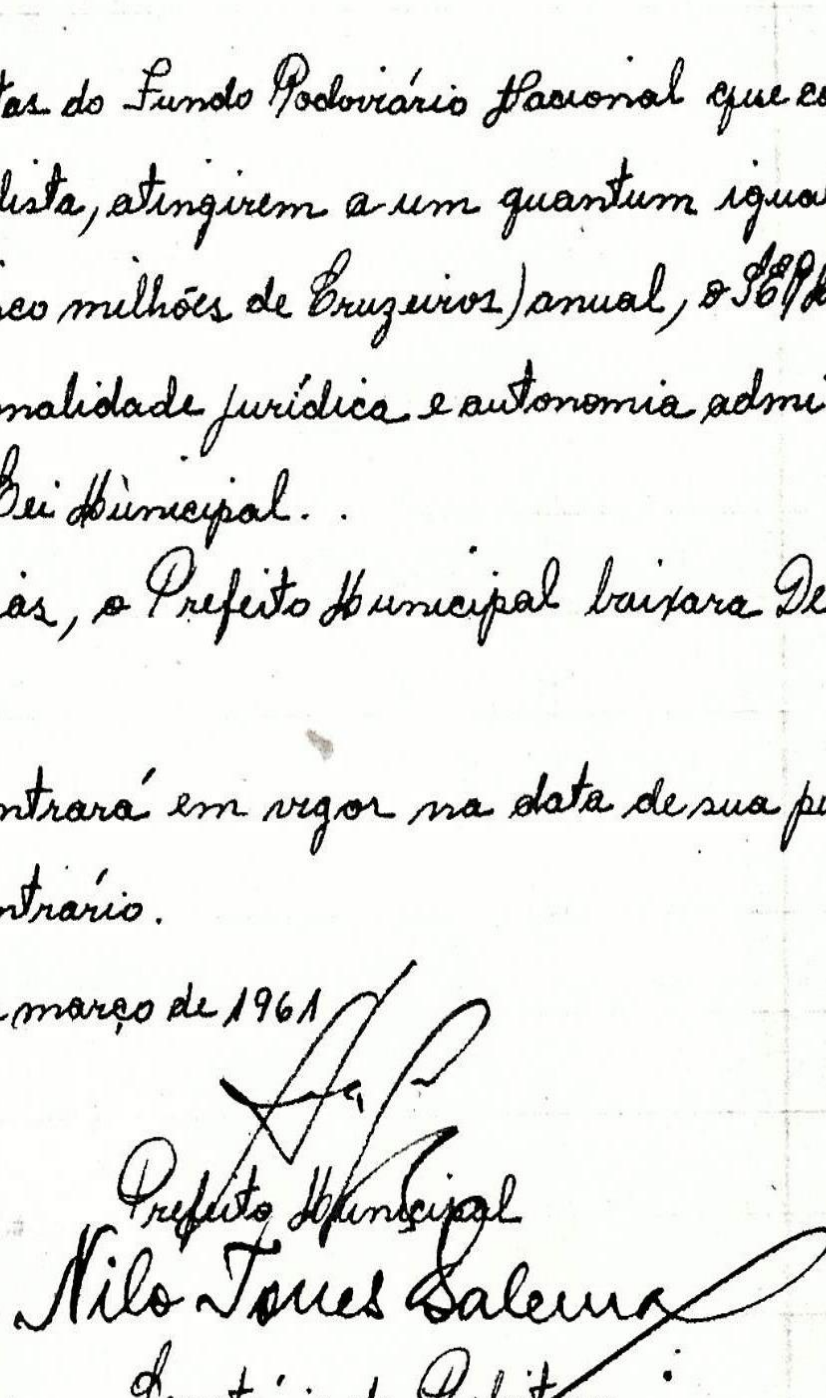 tas do Fundo Rodoviário Nacional que co
lista, atingirem a um quantum igua
co milhões de Cruzeiros) anual, o
nalidade jurídica e autonomia admi
Lei Municipal. .
as, o Prefeito Municipal baixara De
ntrará em vigor na data de sua pu
ntrário.
março de 1961
Prefeito Municipal
Nilo Torres Salema